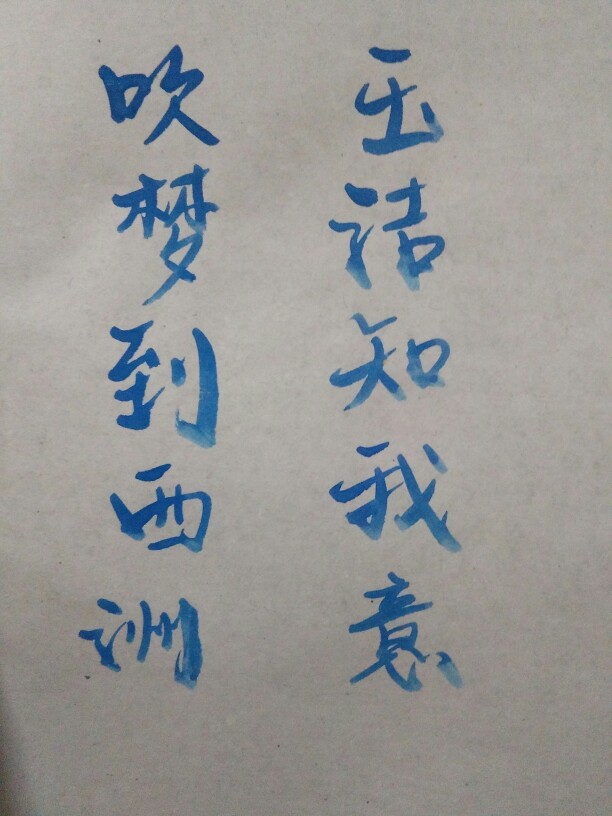 玉洁知我意
吹梦到西洲